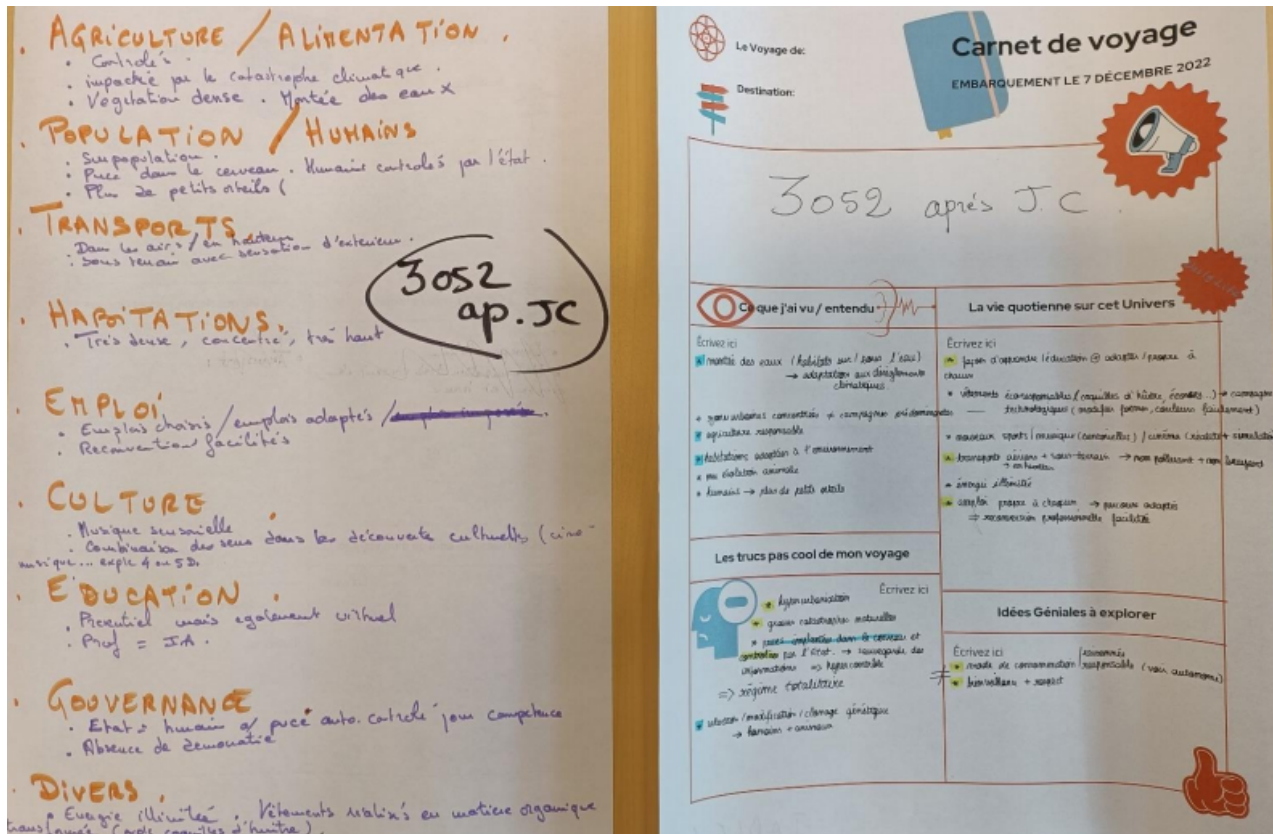 . AGRICULTURE / ALIMENTATION .
. Controlés .
. impactée par le catastrophe climatique .
. Végétation dense . Montée des eaux
. POPULATION / HUMAINS
. Surpopulation .
. Puce dans le cerveau . Humains controlés par l'état .
. Plus de petits orteils (
. TRANSPORTS
. Dans les airs / en hauteur
. Sous terrain avec sensation d'exterieur .
3052
ap. JC
. HABITATIONS .
. Très dense, concentré, très haut
. EMPLOI
. Emplois choisis / emplois adaptés /
. Reconvention facilités
. CULTURE .
. Musique sensorielle
. Combinaison des sens dans les découverte culturelles (ciné-
musique... exple 4 ou 5D.
. EDUCATION .
. Présentiel mais egalement virtuel
. Prof = IA .
. GOUVERNANCE
. Etat : humain pucé auto. controlé pour compétence
. Absence de démocratie
. DIVERS .
. Energie illimitée . Vêtements réalisés en matière organique
transformée coquilles d'huître)
Le Voyage de:
Destination:
Carnet de voyage
EMBARQUEMENT LE 7 DÉCEMBRE 2022
3052 après J.C .
Ce que j'ai vu / entendu
Écrivez ici
montée des eaux (habitats sur / sous l'eau)
→ adaptation aux dérèglements
climatiques
zones urbaines concentrées ≠ campagnes prédominantes
agriculture responsable
habitations adaptées à l'environnement
évolution animale
humains → plus de petits orteils
La vie quotienne sur cet Univers
Écrivez ici
façon d'apprendre l'éducation adaptée / propre à
chacun
vêtements écoresponsables (coquilles d'huître, écorces...) →
technologiques (modifier forme, couleurs facilement)
nouveaux sports / musique (sensorielles) / cinéma (réalité + simulation
transports aériens + sous-terrain → non polluant + non bruyant
→ en hauteur
énergie illimitée
emploi propre à chacun → parcours adaptés
⇒ reconversion professionnelle facilitée
Les trucs pas cool de mon voyage
Écrivez ici
hyper urbanisation
graves catastrophes naturelles
puces implantées dans le cerveau et
controlées par l'état. → sauvegarde des
informations ⇒ hyper contrôle
⇒ régime totalitaire
sélection / modification / clonage génétique
→ humains + animaux
Idées Géniales à explorer
Écrivez ici
mode de consommation responsable (voir autonome)
bienveillance + respect